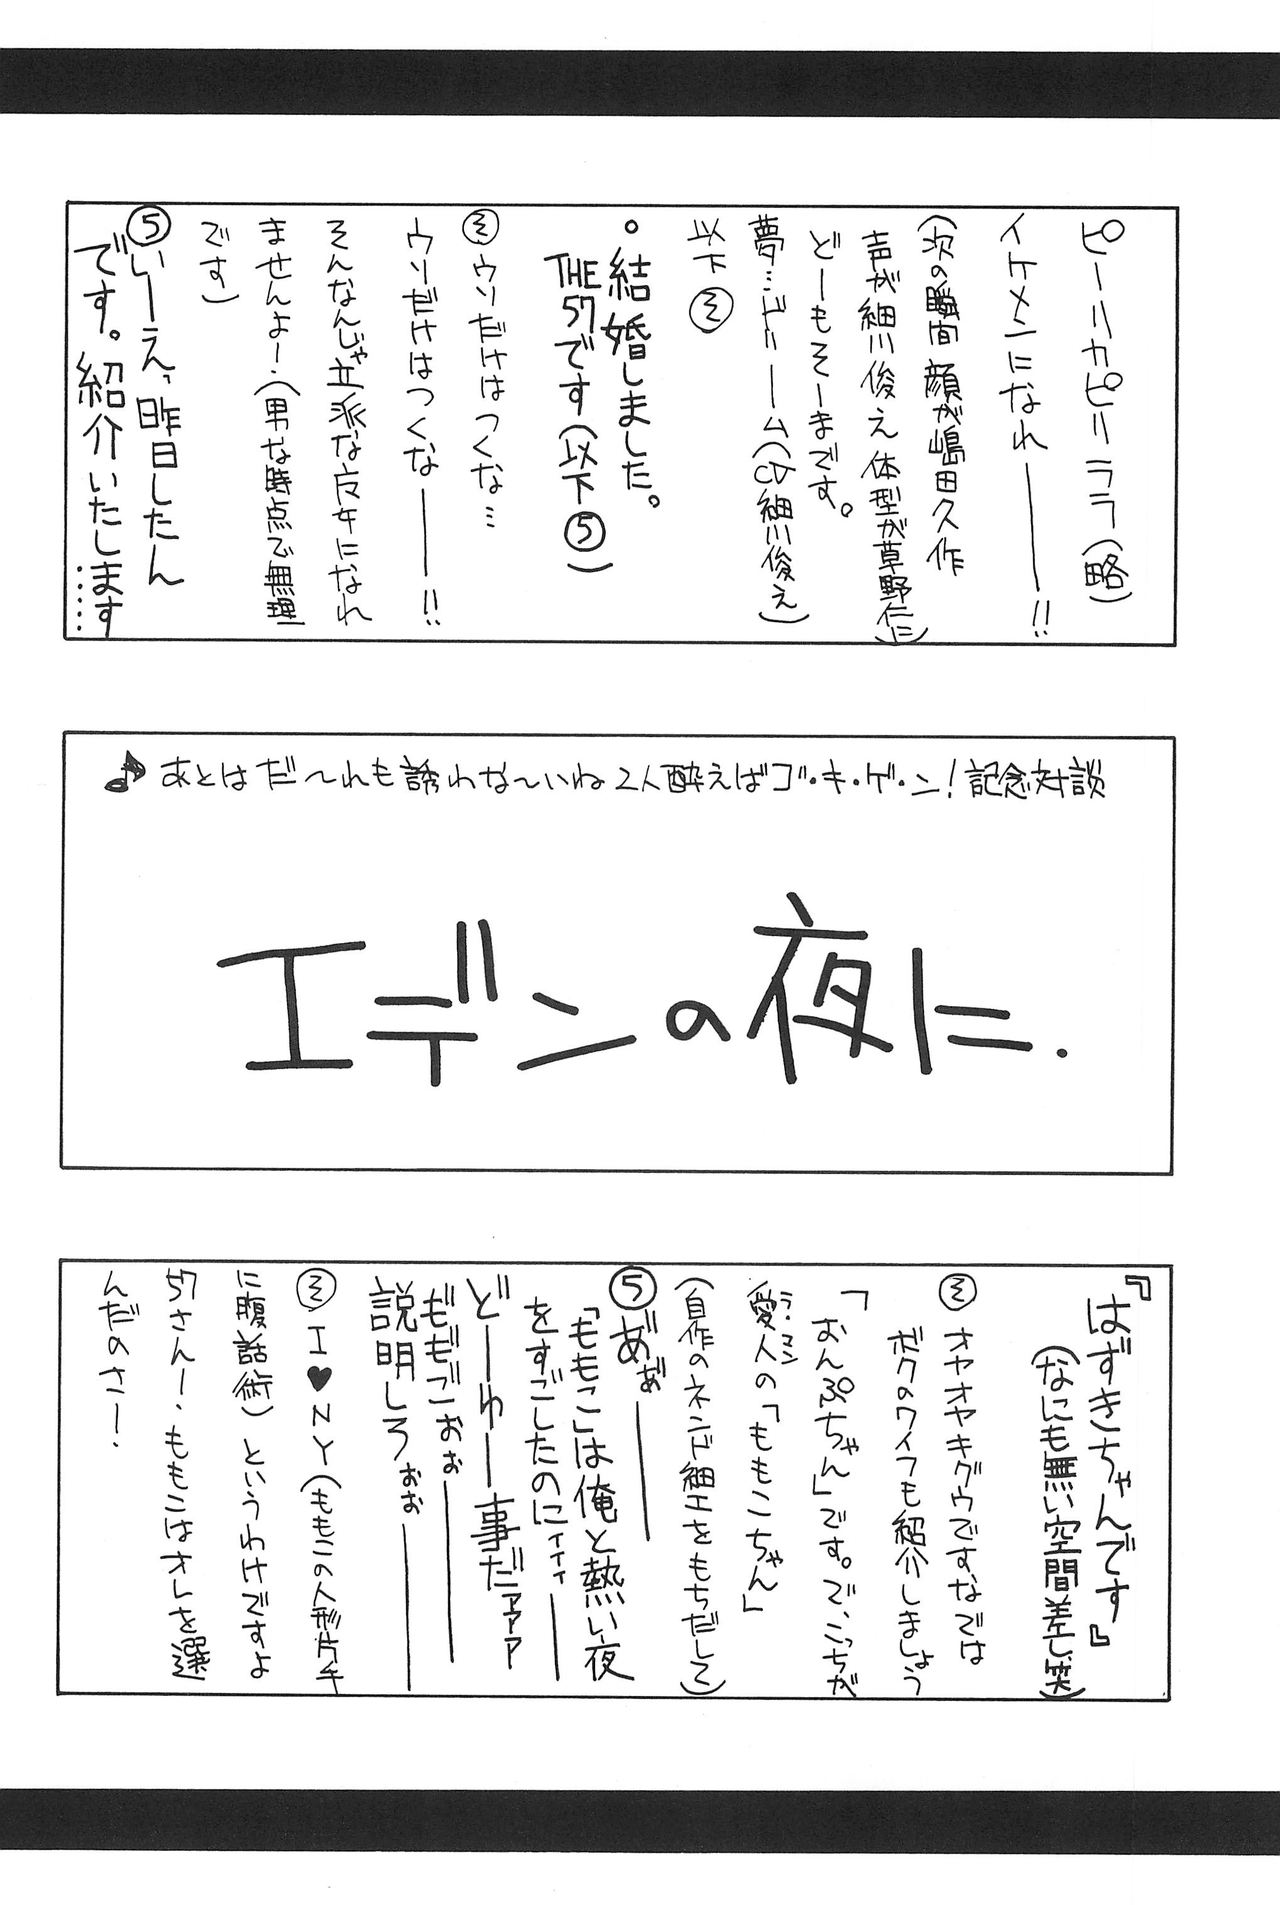 ピーリカピリララ(略)
イケメンになれ――!!
(次の瞬間 顔が嶋田久作
声が細川俊之 体型が草野仁に)
どーもそーまです。
夢…ドリーム(CV細川俊之)
以下そ
。結婚しました。
THE57です(以下5)
そ ウソだけはつくな…
ウソだけはつくな――!!
そんなんじゃ立派な女になれ
ませんよー.(男な時点で無理
です)
5 いーえ、昨日したん
です。紹介いたします……
♪あとはだ〜れも誘わな〜いね2人酔えばゴ・キ・ゲ・ン!記念対談
エデンの夜に.
『はずきちゃんです』
(なにも無い空間差し.笑)
そ オヤオヤキグウですなでは
ボクのワイフも紹介しましょう
「おんぷちゃん」です。で、こっちが
愛人の「ももこちゃん」
ラ・マン
(自作のネンド細工をもちだして)
5 あ゛ぁ゛――
「ももこ」は俺と熱い夜
をすごしたのにィィィ――
どーゆー事だァァァ
ももごぉぉ――
説明しろぉぉ――
そ I♥NY(ももこの人形片手
に腹話術)というわけですよ
57さんー.ももこはオレを選
んだのさー.